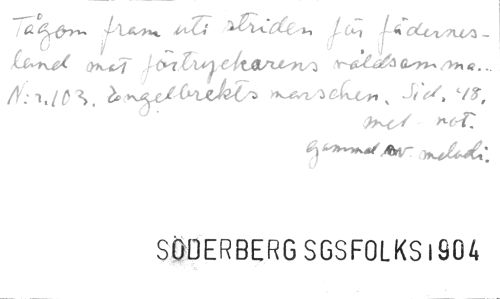 Tågom fram uti striden för fädernes-
land mot förtryckarens våldsamma...
N:r. 103. Engelbrekts marschen. Sid. 48.
mel. not.
Gammal sv. melodi.
SÖDERBERG SGSFOLKS 1904